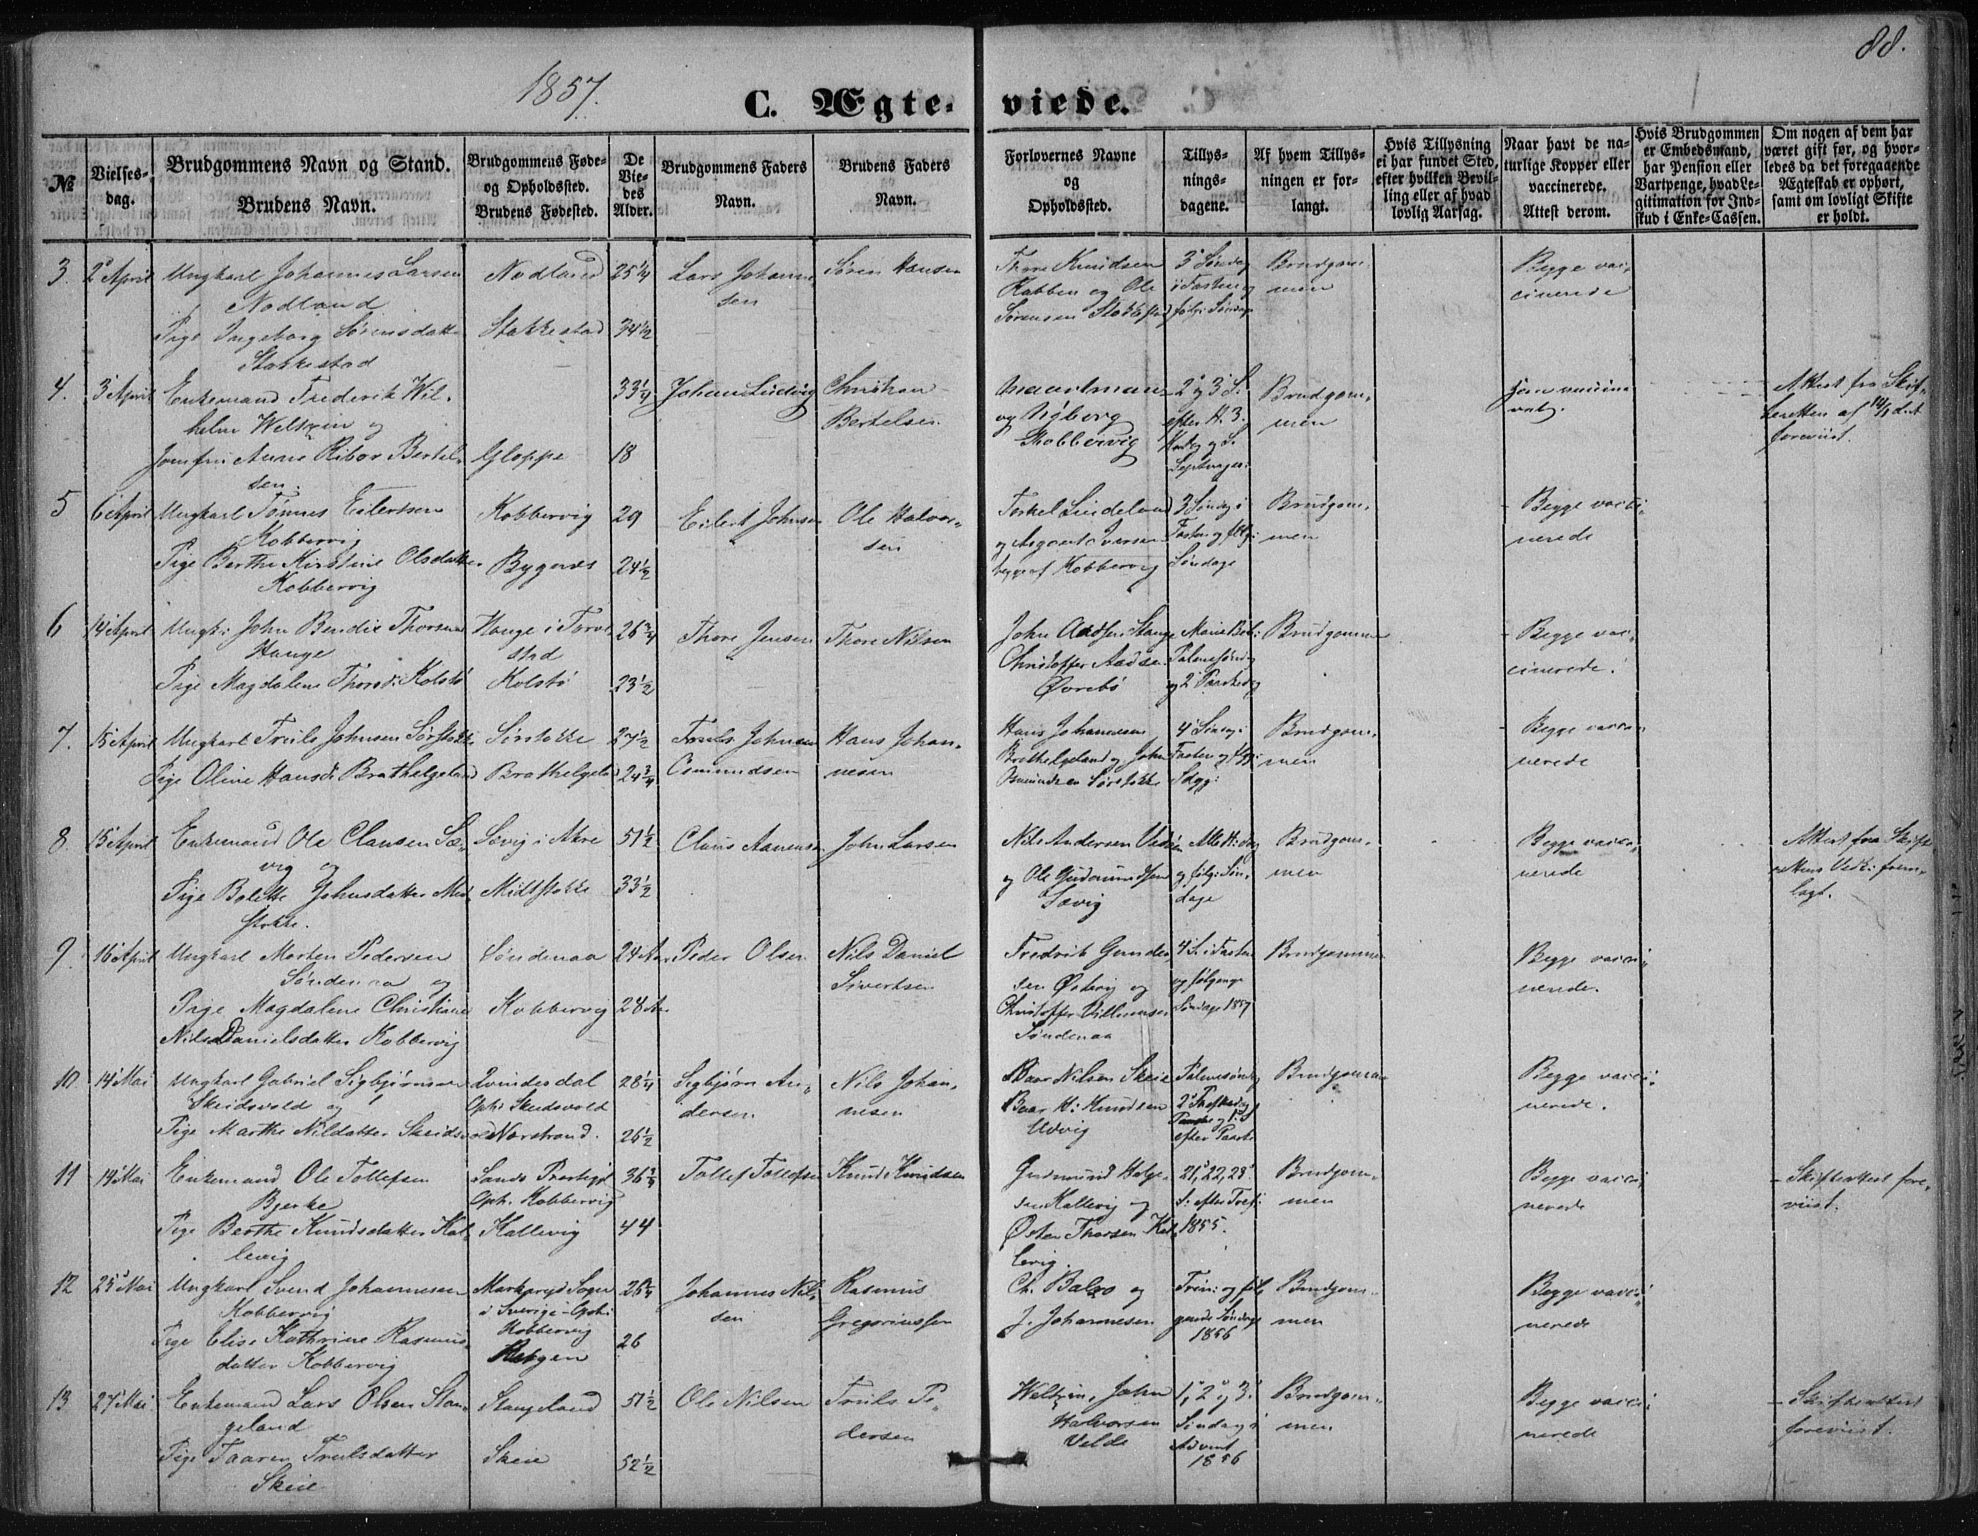 88.
1857.
C. Ægteviede.
№
Vielsesdag.
Brudgommens Navn og Stand.
Brudens Navn.
Brudgommens Føde- og Opholdssted.
Brudens Fødested.
De Viedes Alder.
Brudgommens Faders Navn.
Brudens Faders Navn.
Forlovernes Navne og Opholdssted.
Tillysningsdagene.
Af hvem Tillysningen er forlangt.
Hvis Tillysning ei har fundet Sted, efter hvilken Bevilling eller af hvad lovlig Aarsag.
Naar havt de naturlige Kopper eller vaccinerede.
Attest derom.
Hvis Brudgommen er Embedsmand, har Pension eller Vartpenge, hvad Legitimation for Indskud i Enke-Cassen.
Om nogen af dem har været gift før, og hvorledes da det foregaaende Ægteskab er ophørt, samt om lovligt Skifte er holdt.
3. 2 April Ungkarl Johannes Larsen Nodland 25 1/4 Lars Johannesen Søren Hansen Thore Knudsen 3 Søndag Brudgommen Begge vaccinerede
Nodland Rabben og Ole i Fasten og
Pige Ingeborg Sørensdatter Stakkestad 34 1/2 Sørensen Stakkestad følg: Søndage
Stakkestad
4. 3 April Enkemand Frederik Wilhelm 33 1/4 Johan Ludvig Christian Bertelsen 2 og 3 S. Brudgommen Attest fra Skifteretten af 14/1 d.A. foreviist.
Weltzin og og Kobbervig efter H. 3.
Jomfru Anne Bertelsen. Gloppe 18
5 6 April Ungkarl Tønnes Eilertsen Kobbervig 29 Eilert Johnsen Ole Halvorsen Torkel Lindeland 3 Søndag i Brudgommen Begge vaccinerede
Kobbervig og Asgaut Iversen Fasten og følg:
Pige Berthe Kirstine Olsdatter Bygnes 24 1/2 begge af Kobbervig Søndage
Kobbervig
6 14 April Ungk: John Bendix Thorsen Hauge i Torvestad 26 3/4 Thore Jensen Thore Nilsen John Aadsen Hauge Brudgommen Begge vaccinerede.
Hauge Christoffer Aadsen Palmesøndag
Pige Magdalene Thorsd: Kolstø Kolstø 23 1/2 Øvrebø og 2 Paaskedag
7. 15 April Ungkarl Truls Johnsen Sørstokke Sørstokke 27 1/2 Truls Johnsen Hans Johannesen Hans Johannesen 4 Søndag i Brudgommen Begge vaccinerede
Pige Oline Hansd: Brathelgeland Brathelgeland 24 3/4 Osmundsen Brathelgeland og John Fasten og følg:
Sørstokke
8. 15 April Enkemand Ole Clausen Sævig og Sævig i Akre 51 1/2 Claus Aanensen John Larsen Nils Andersen Brudgommen Begge vaccinerede Attest fra Skifterettens foremlagt.
Pige Bolette Johnsdatter Midtstokke. Midtstokke 33 1/2 og Ole Gudmundsen Sævig og følg: Søndage
9. 16 April Ungkarl Morten Pedersen Søndenaa 24 Aar Peder Olsen Nils Daniel Sivertsen Fredrik Gundersen 4 S. i Fasten Brudgommen Begge vaccinerede.
Søndenaa og og følgende
Pige Magdalene Christiane Kobbervig 28 Aar Christoffer Villumsen Søndage 1857
Nils Danielsdatter Kobbervig Søndenaa
10 14 Mai Ungkarl Gabriel Sigbjørnsen Qvindesdal 28 1/4 Sigbjørn Andersen Nils Johannesen Baar Nilsen Skeie Palmesøndag Brudgommen Begge vaccinerede.
Skeidsvold og Oph: Skeidsvold Baar H: Knudsen 2 Paaskedag
Pige Marthe Nilsdatter Skeidsvold Norstrand. 26 1/2 Udvig og 1 S. efter Paaske
11 14 Mai Enkemand Ole Tollefsen Sands Præstegjd 36 3/4 Tollef Tollefsen Knud Knudsen Gudmund Helgesen 21, 22, 23 Brudgommen Begge vaccinerede Skifteattest foreviist.
Bjerke Oph. Kobbervig Kallevig og S. efter Tref:
Pige Berthe Knudsdatter Kallevig Kallevig 44 Østen Thorsen Kallevig. 1855.
12 25 Mai Ungkarl Svend Johannesen Sogn 26 1/4 Johannes Nilsen Rasmus Gregoriussen Ch. Balos og Trin: og følgende Søndage Brudgommen Begge vaccinerede
Kobbervig i Sverige - Oph: Kobbervig J. Johannesen 1856
Pige Elise Kathrine Rasmusdatter Kobbervig Bergen 26
13 27 Mai Enkemand Lars Olsen Stangeland Stangeland 51 1/2 Ole Nilsen Truls Pedersen Weltzin, John 1, 2 og 3 Brudgommen Begge vaccinerede Skifteattest foreviist.
Pige Taaren Trulsdatter Skeie 52 1/2 Halvorsen Velde Søndag i Advent 1856
Skeie